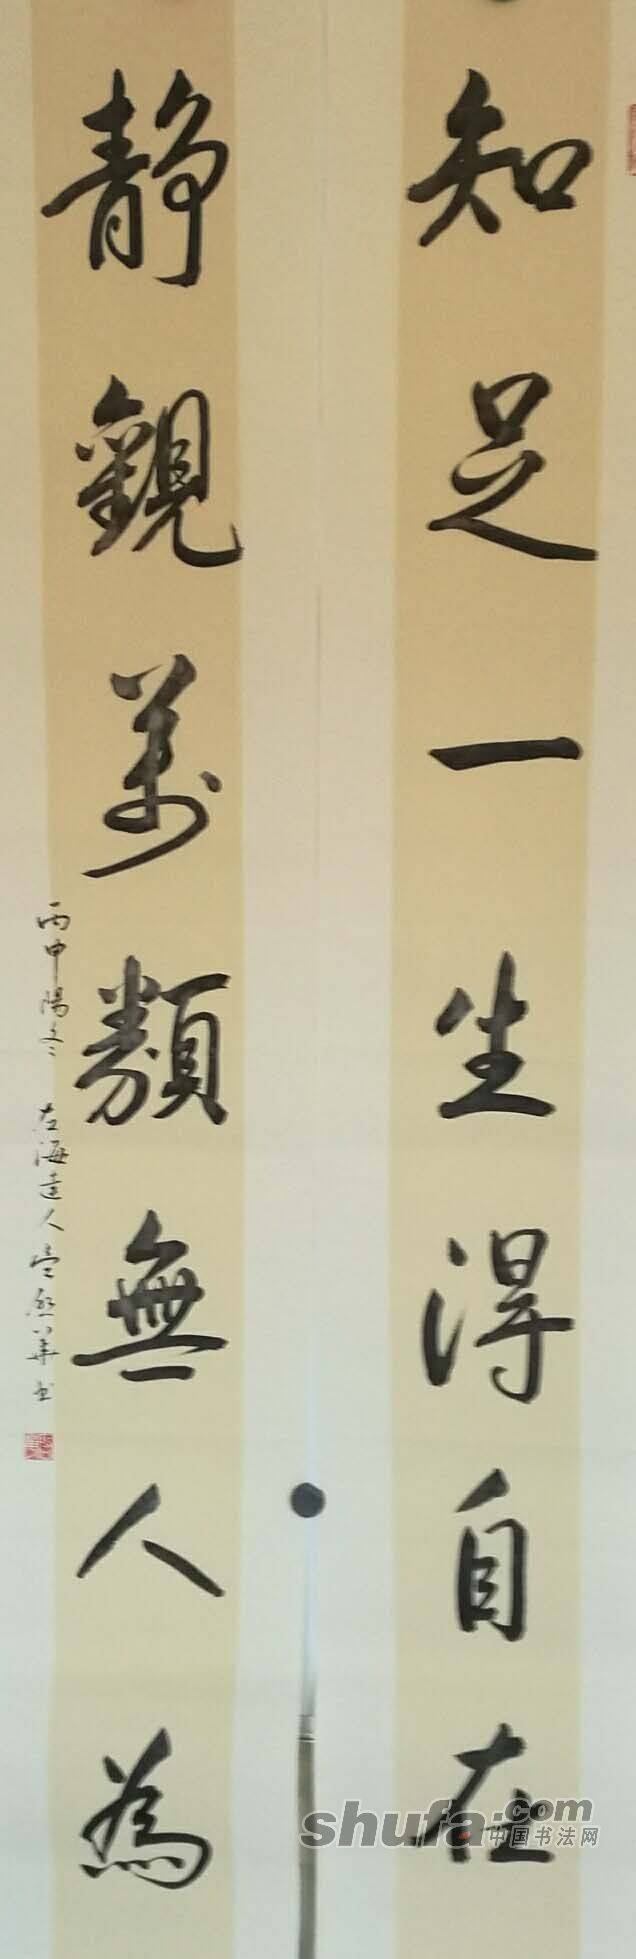 知足一生得自在
靜觀萬類無人為
丙申陽冬 左海達人
華书
shufa.com
中国书法网